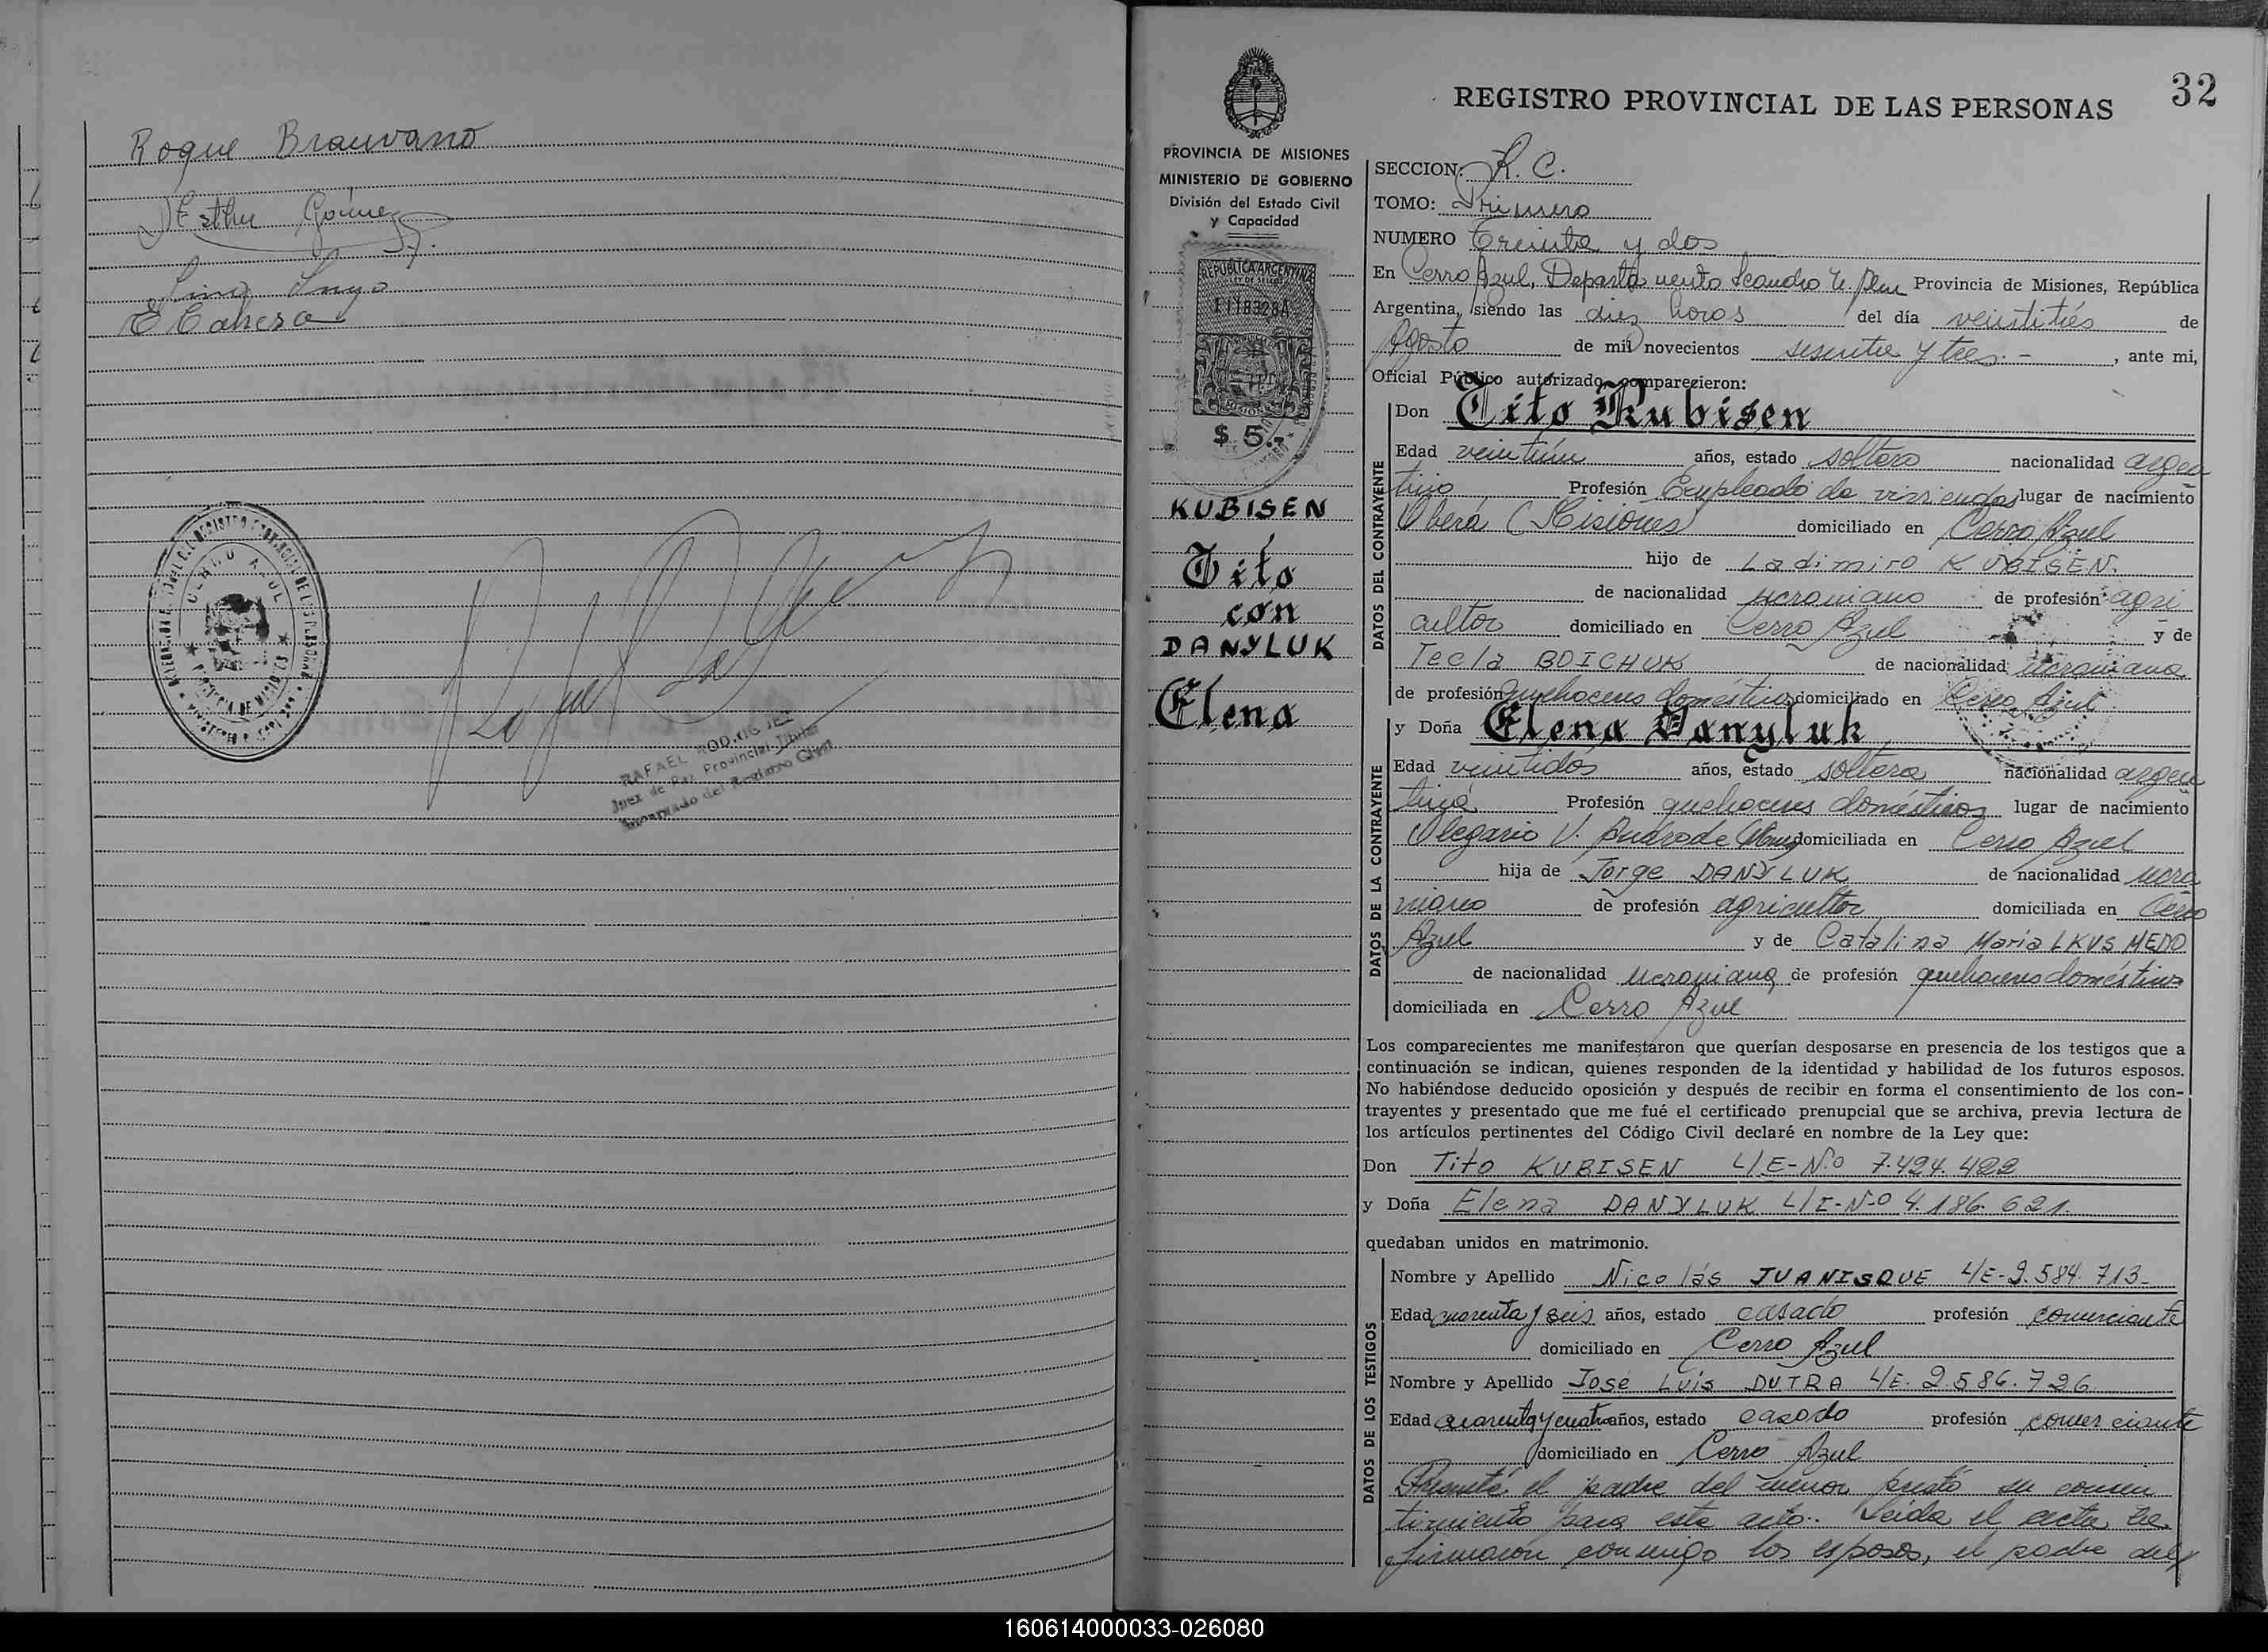 Roque Brauvano
Esther Gómez
Lino
E Cabrera
CERRO AZUL
RAFAEL RODRIGUEZ
Juez de Paz Provincial Titular
Encargado del Registro Civil
32
REGISTRO PROVINCIAL DE LAS PERSONAS
PROVINCIA DE MISIONES
MINISTERIO DE GOBIERNO
División del Estado Civil
y Capacidad
REPUBLICA ARGENTINA
LEY DE SELLOS
$ 5.-
KUBISEN
Tito
con
DANYLUK
Elena
SECCION: R. C.
TOMO: Primero
NUMERO Treinta y dos
En Cerro Azul, Departamento Leandro N. Alem Provincia de Misiones, República
Argentina, siendo las diez horas del día veintitrés de
Agosto de mil novecientos sesenta y tres.- , ante mi,
Oficial Público autorizado, comparecieron:
DATOS DEL CONTRAYENTE
Don Tito Kubisen
Edad veintiún años, estado soltero nacionalidad argen
tino Profesión Empleado de lugar de nacimiento
Oberá (Misiones domiciliado en Cerro Azul
hijo de Ladimiro KUBISEN.
de nacionalidad ucraniano de profesión agri
cultor domiciliado en Cerro Azul y de
Tecla BOICHUK de nacionalidad ucraniana
de profesión quehaceres domésticos domiciliado en Cerro Azul.
DATOS DE LA CONTRAYENTE
y Doña Elena Danyluk
Edad veintidós años, estado soltera nacionalidad argen
tina Profesión quehaceres domésticos lugar de nacimiento
Olegario V. Andrade domiciliada en Cerro Azul
hija de Jorge DANYLUK de nacionalidad ucra
niano de profesión agricultor domiciliada en Cerro
Azul y de Catalina María LKUS MEDO
de nacionalidad ucraniana de profesión quehaceres domésticos
domiciliada en Cerro Azul
Los comparecientes me manifestaron que querían desposarse en presencia de los testigos que a
continuación se indican, quienes responden de la identidad y habilidad de los futuros esposos.
No habiéndose deducido oposición y después de recibir en forma el consentimiento de los con-
trayentes y presentado que me fué el certificado prenupcial que se archiva, previa lectura de
los artículos pertinentes del Código Civil declaré en nombre de la Ley que:
Don Tito KUBISEN L/E-N.o 7.494.422
y Doña Elena DANYLUK L/I-N.o 4.186.621.
quedaban unidos en matrimonio.
DATOS DE LOS TESTIGOS
Nombre y Apellido Nicolás JUANISQUE L/E-9.584.713-
Edad cuarenta y seis años, estado casado profesión comerciante
domiciliado en Cerro Azul
Nombre y Apellido José Luis DUTRA L/E. 2.586.726
Edad cuarenta y cuatro años, estado casado profesión comerciante
domiciliado en Cerro Azul
Presente el padre del menor prestó su consen
timiento para este acto.. Leída el acta, la
firmaron conmigo los esposos, el padre del
160614000033-026080